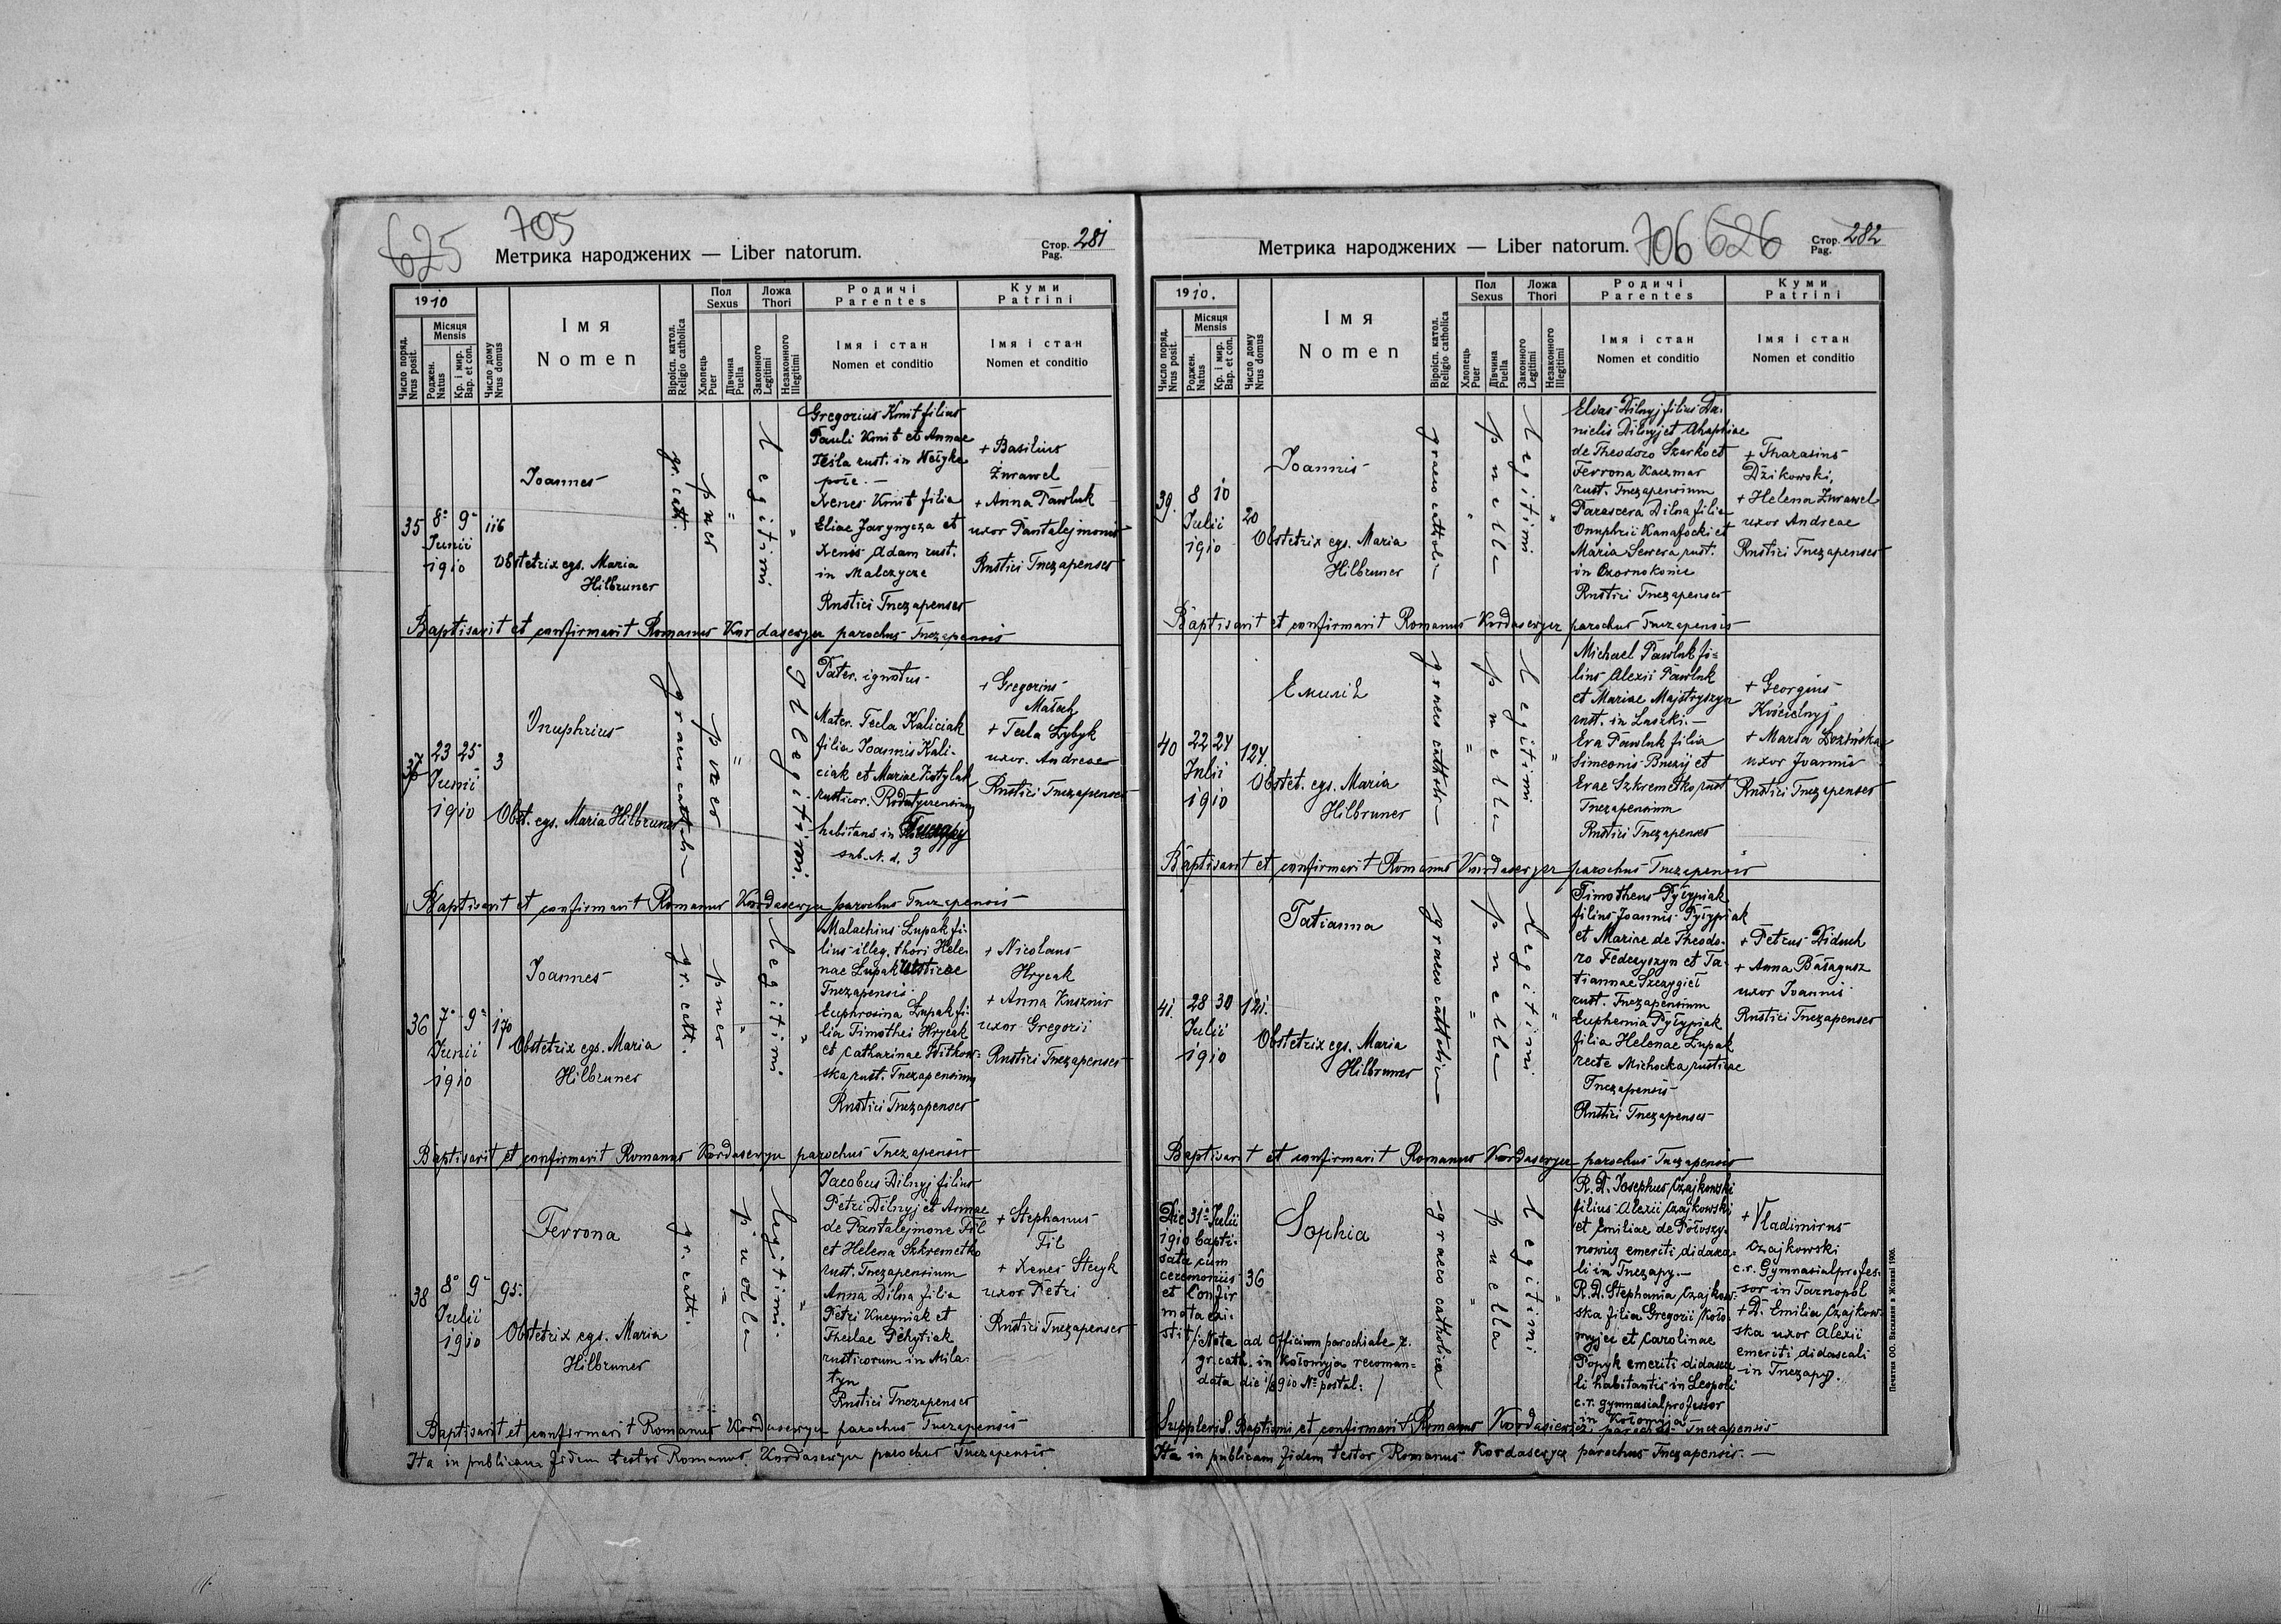 625
705
Метрика народжених — Liber natorum.
Стор. Pag. 281
1910
Число поряд. Nrus posit.
Місяця Mensis
Роджен. Natus
Кр. і мир. Bap. et con.
Число дому Nrus domus
Імя
Nomen
Віроісп. катол. Religio catholica
Пол Sexus
Хлопець Puer
Дівчина Puella
Ложа Thori
Законного Legitimi
Незаконного Illegitimi
Родичі
Parentes
Імя і стан
Nomen et conditio
Куми
Patrini
Імя і стан
Nomen et conditio
35
8 9
Junii
1910
116
Joannes
Obstetrix egs. Maria
Hilbruner
gr. cath.
puer
legitimi
Gregorius Kmit filius
Pauli Kmit et Annae
Teśla rust. in
Xenes Kmit filia
Eliae Jarynycza et
Xenis Adam rust.
in Malczyce
Rustici Tuczapenses
+ Basilius
Żurawel
+ Anna Pawluk
uxor Pantalejmonis
Rustici Tuczapenses
Baptisavit et confirmavit Romanus Kordasewycz parochus Tuczapensis
37
23 25
Junii
1910
3
Onuphrius
Obst. egs. Maria Hilbruner
graeco cath
puer
Illegitimi
Pater. ignotus
Mater. Tecla Kaliciak
filia Joannis Kali-
ciak et Mariae
rusticor.
habitans in Tuczapy
sub. N. d. 3
+ Gregorius
+ Tecla Zybyk
uxor. Andreae
Rustici Tuczapenses
Baptisavit et confirmavit Romanus Kordasewycz parochus Tuczapensis
36
7 9
Junii
1910
170
Joannes
Obstetrix egs. Maria
Hilbruner
gr. cath.
puer
legitimi
Malachius Łupak fi-
lius illeg. thori Hele-
nae Łupak rusticae
Tuczapensis
Euphrosina Łupak fi-
lia Timothei Hrycak
et Catharinae Witkow-
ska rust. Tuczapensium
Rustici Tuczapenses
+ Nicolaus
Hrycak
+ Anna Kusznir
uxor Gregorii
Rustici Tuczapenses
Baptisavit et confirmavit Romanus Kordasewycz parochus Tuczapensis
38
8 9
Julii
1910
95.
Fevrona
Obstetrix egs. Maria
Hilbruner
gr. cath.
puella
legitimi.
Jacobus Dilnyj filius
Petri Dilnyj et Annae
de Pantalejmone Fil
et Helena Szkremetko
rust. Tuczapensium
Anna Dilna filia
Petri Kucyniak et
Theclae
rusticorum in Mila-
tyn
Rustici Tuczapenses
+ Stephanus
Fil
+ Xenes Stecyk
uxor Petri
Rustici Tuczapenses
Baptisavit et confirmavit Romanus Kordasewycz parochus Tuczapensis
Ita in publicam fidem testor Romanus Kordasewycz parochus Tuczapensis
Метрика народжених — Liber natorum.
706 626
Стор. Pag. 282
1910.
Число поряд. Nrus posit.
Місяця Mensis
Роджен. Natus
Кр. і мир. Bap. et con.
Число дому Nrus domus
Імя
Nomen
Віроісп. катол. Religio catholica
Пол Sexus
Хлопець Puer
Дівчина Puella
Ложа Thori
Законного Legitimi
Незаконного Illegitimi
Родичі
Parentes
Імя і стан
Nomen et conditio
Куми
Patrini
Імя і стан
Nomen et conditio
39.
8 10
Julii
1910
20
Joannis
Obstetrix egs. Maria
Hilbruner
graeco catholic
puella
legitimi
Elias Dilnyj filius Da-
nielis Dilnyj et Ahaphiae
de Theodoro Szarko et
Fevrona Kaczmar
rust. Tuczapensium
Parascera Dilna filia
Onuphrii Kanafocki et
Maria Severa rust.
in Czornokońce
Rustici Tuczapenses
+ Tharasius
Dzikowski,
+ Helena Żurawel
uxor Andreae
Rustici Tuczapenses
Baptisavit et confirmavit Romanus Kordasewycz parochus Tuczapensis
40
22 24
Julii
1910
124.
Емилія
Obstet. egs. Maria
Hilbruner
graeco cathol
puella
legitimi
Michael Pawluk fi-
lius Alexii Pawluk
et Mariae Majstryszyn
rust. in Laszki.—
Eva Pawluk filia
Simeonis Buczij et
Evae Szkremetko rust
Tuczapensium
Rustici Tuczapenses
+ Georgius
Kościelnyj
+ Maria Łozińska
uxor Joannis
Rustici Tuczapenses
Baptisavit et confirmavit Romanus Kordasewycz parochus Tuczapensis
41.
28 30
Julii
1910
121.
Tatianna
Obstetrix egs. Maria
Hilbruner
graeco catholica
puella
legitimi
Timotheus Pyłypiak
filius Joannis Pyłypiak
et Mariae de Theodo-
ro Fedczyszyn et Ta-
tiannae Szczygieł
rust. Tuczapensium
Euphemia Pyłypiak
filia Helenae Łupak
recte Michocka rusticae
Tuczapensis
Rustici Tuczapenses
+ Petrus Diduch
+ Anna Bałagusz
uxor Joannis
Rustici Tuczapenses
Baptisavit et confirmavit Romanus Kordasewycz parochus Tuczapensis
Die 31 Julii
1910 bapti-
sata cum
ceremoniis
et Confir
mata exi-
stit
36
Sophia
/ Nota ad Officium parochiale r.
gr. cath. in Kołomyja recoman-
data die 1/8 910 No postal: /
graeco catholica
puella
legitimi
R. D. Josephus Czajkowski
filius Alexii Czajkowski
et Emiliae de Połoszy-
nowicz emeriti didasca-
li in Tuczapy.—
R. D. Stephania Czajkow-
ska filia Gregorii Koło-
myjec et Carolinae
Popyk emeriti didasca
li habitantis in Leopoli
c.r. gymnasialprofessor
in Kołomyja
+ Vladimirus
Czajkowski
c.r. Gymnasialprofes-
sor in Tarnopol
+ D. Emilia Czajkow-
ska uxor Alexii
emeriti didascali
in Tuczapy.
Supplevit S. Baptismi et confirmavit Romanus Kordasiewicz parochus Tuczapensis
Ita in publicam fidem testor Romanus Kordasewycz parochus Tuczapensis.—
Печатня ОО. Василиян в Жовкві 1906.